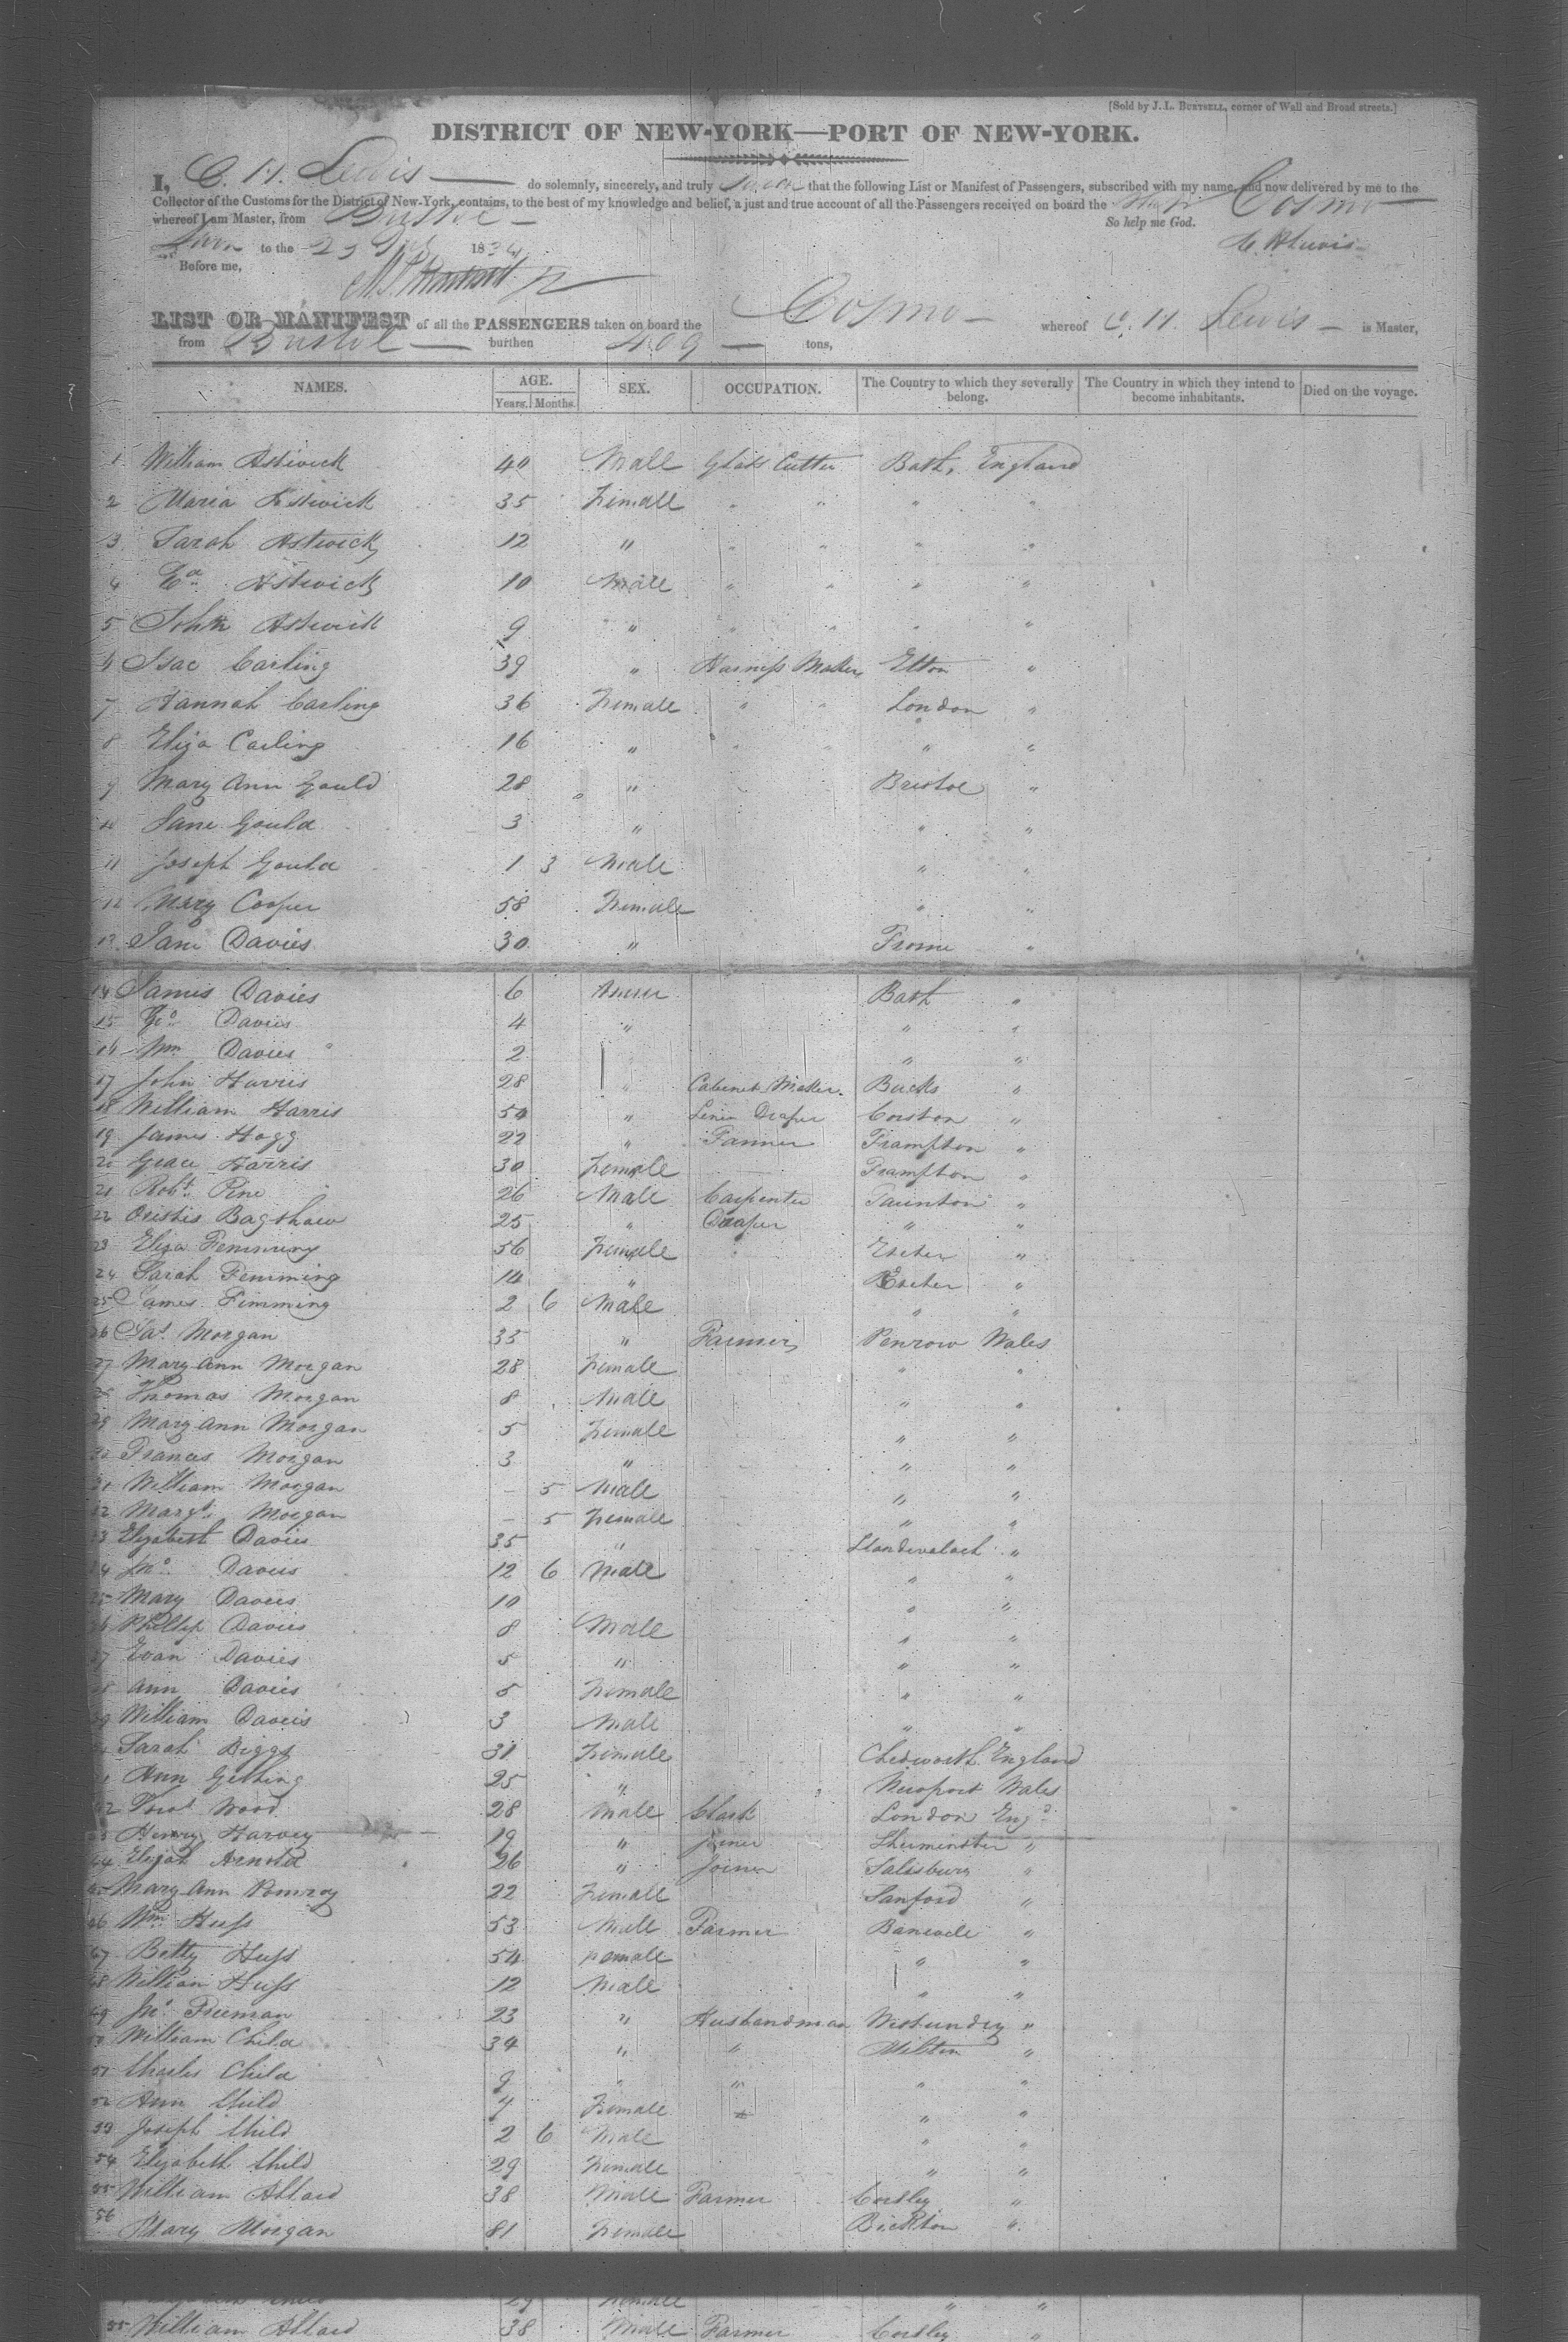 [Sold by J. L. BURTSELL, corner of Wall and Broad streets.]
DISTRICT OF NEW-YORK—PORT OF NEW-YORK.
I, C. H. Lewis do solemnly, sincerely, and truly swear that the following List or Manifest of Passengers, subscribed with my name, and now delivered by me to the
Collector of the Customs for the District of New-York, contains, to the best of my knowledge and belief, a just and true account of all the Passengers received on board the Ship Cosmo
whereof I am Master, from Bristol So help me God.
Sworn to the 23 1834 C. H Lewis
Before me,
LIST OR MANIFEST of all the PASSENGERS taken on board the Cosmo whereof C. H. Lewis is Master,
from Bristol burthen 409 tons,
NAMES. AGE. SEX. OCCUPATION. The Country to which they severally belong. The Country in which they intend to become inhabitants. Died on the voyage.
Years. Months.
1 William Astwick 40 Male Glass Cutter Bath, England
2 Maria Astwick 35 Female " " " "
3 Sarah Astwick 12 " " " " "
4 Astwick 10 Male " " " "
5 John Astwick 9 " " " " "
6 Isac Carling 39 " Harness Maker Elton "
7 Hannah Carling 36 Female " " London "
8 Eliza Carling 16 " " " " "
9 Mary Ann Gould 28 " Bristol "
10 Jane Gould 3 " " "
11 Joseph Gould 1 3 Male " "
12 Mary Cooper 58 Female " "
13 Jane Davies 30 " Frome "
14 James Davies 6 Bath "
15 Geo Davies 4 " " "
16 Wm Davies 2 " " "
17 John Harris 28 " Cabinet Maker Bucks "
18 William Harris 50 " Linen Draper Corston "
19 James Hogg 22 " Farmer Frampton "
20 Grace Harris 30 Female Frampton "
21 Robt Pine 26 Male Carpenter Taunton "
22 Bagshaw 25 " Draper " "
23 Eliza Femming 56 Female Exeter "
24 Sarah Femming 14 " Exeter "
25 James Fimming 2 6 Male " "
26 Jas Morgan 33 " Farmer Penrow Wales
27 Mary Ann Morgan 28 Female " "
28 Thomas Morgan 8 Male " "
29 Mary Ann Morgan 5 Female " "
30 Frances Morgan 3 " " "
31 William Morgan - 5 Male " "
32 Margt Morgan - 5 Female " "
33 Elizabeth Davies 35 " "
34 Jno Davies 12 6 Male " "
35 Mary Davies 10 " "
36 Phillip Davies 8 Male " "
37 Evan Davies 5 " " "
38 Ann Davies 5 Female " "
39 William Davies 3 Male " "
40 Sarah Biggs 31 Female Chedworth England
41 Ann Gething 25 " Newport Wales
42 Wood 28 Male Clark London Engd
43 Henry Harvey 19 " Joiner "
44 Elijah Arnold 26 " Joiner Salisbury "
45 Mary Ann Pomroy 22 Female Sanford "
46 Wm Huss 53 Male Farmer "
47 Betty Huss 54 Female " "
48 William Huss 12 Male " "
49 Jno Freeman 23 " Husbandman "
50 William Child 34 " " Milton "
51 Charles Child 9 " " " "
52 Ann Child 7 Female " " "
53 Joseph Child 2 6 Male " "
54 Elizabeth Child 29 Female " "
55 William Allard 38 Male Farmer Corsley "
56 Mary Morgan 81 Female Bickton "
29 Female " "
55 William Allard 38 Male Farmer Corsley "